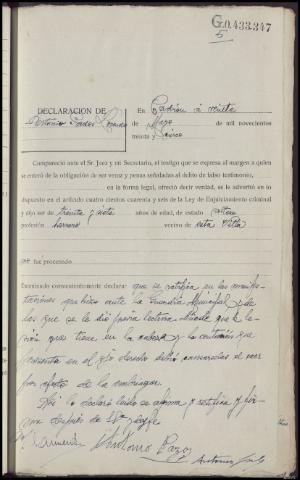 G.0.433.347
5
DECLARACION DE
Antonio
En Padrón a veinte
de Mayo de mil novecientos
treinta y cinco
Compareció ante el Sr. Juez y mi Secretario, el testigo que se expresa al margen a quien
se enteró de la obligación de ser veraz y penas señaladas al delito de falso testimonio,
en la forma legal, ofreció decir verdad, se le advirtió en lo
dispuesto en el artículo cuatro cientos cuarenta y seis de la Ley de Enjuiciamiento criminal
y dijo ser de treinta y siete años de edad, de estado soltero
profesión herrero vecino de esta Villa
no fue procesado
Examinado convenientemente declara: que se ratifica en las manifes-
taciones que hizo ante la Guardia Municipal y de
las que se le dió previa lectura. Añade que la le-
sión que tiene en la cabeza y la contusión que
presenta en el ojo derecho debió causárselas al caer
por efecto de la embriaguez.
Así lo declaró leído se afirma y ratifica y fir-
ma después de S.Sª doy fe
Antonio Pazos
Antonio